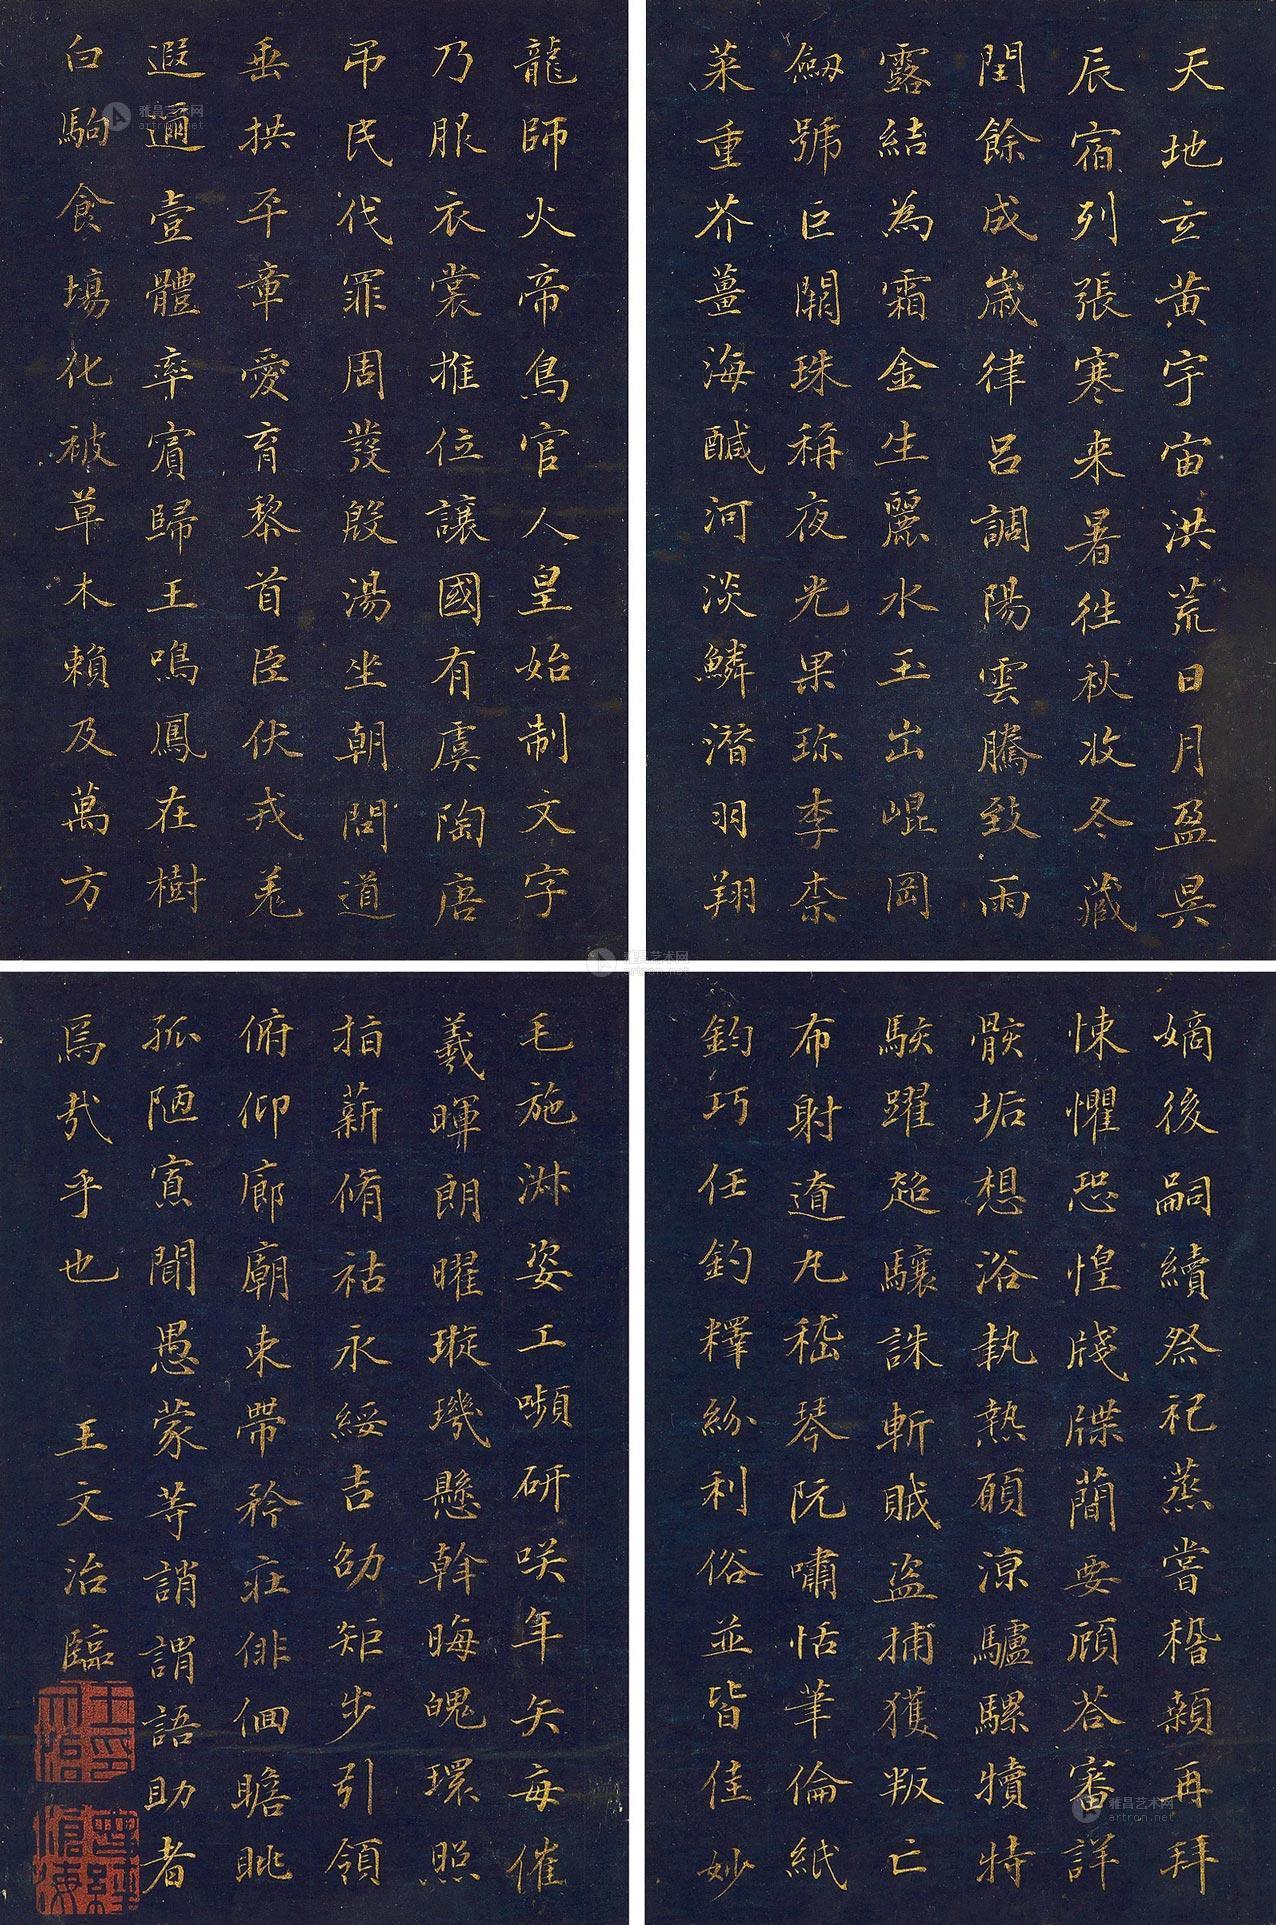 天地玄黄宇宙洪荒日月盈昃
辰宿列張寒来暑往秋收冬藏
閏餘成歲律吕調陽雲騰致雨
露結為霜金生麗水玉出崐岡
劔號巨闕珠稱夜光果珎李柰
菜重芥薑海醎河淡鱗潛羽翔
龍師火帝鳥官人皇始制文字
乃服衣裳推位讓國有虞陶唐
弔民伐罪周發殷湯坐朝問道
垂拱平章愛育黎首臣伏戎羌
遐邇壹體率賓歸王鳴鳳在樹
白駒食場化被草木賴及萬方
嫡後嗣續祭祀蒸嘗稽顙再拜
悚懼恐惶牋牒簡要顧答審詳
骸垢想浴執熱願凉驢騾犢特
駭躍超驤誅斬賊盗捕獲叛亡
布射遼丸嵇琴阮嘯恬筆倫紙
鈞巧任釣釋紛利俗並皆佳妙
毛施淑姿工嚬研咲年矢每催
羲暉朗曜璇璣懸斡晦魄環照
指薪脩祜永綏吉劭矩步引領
俯仰廊廟束帶矜莊俳佪瞻眺
孤陋寡聞愚蒙等誚謂語助者
焉哉乎也 王文治臨
王文治印
曾經滄海
雅昌艺术网
artron.net
雅昌艺术网
artron.net
雅昌艺术网
artron.net